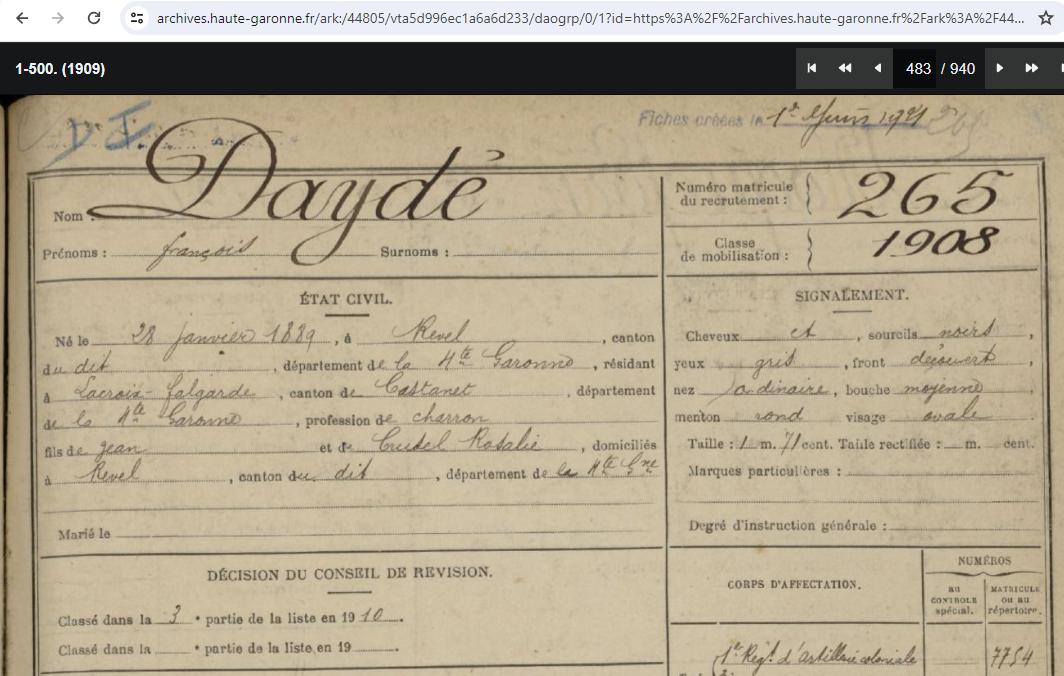 archives.haute-garonne.fr/ark:/44805/vta5d996ec1a6a6d233/daogrp/0/1?id=https%3A%2F%2Farchives.haute-garonne.fr%2Fark%3A%2F44...
1-500. (1909)
483 / 940
D I.
Fiches créées le 1er Juin 1921
Nom : Daydé
Prénoms : françois Surnoms :
Numéro matricule du recrutement : 265
Classe de mobilisation : 1908
ÉTAT CIVIL.
Né le 28 janvier 1889, à Revel, canton
du dit, département de la Hte Garonne, résidant
à Lacroix-falgarde, canton de Castanet département
de la Hte Garonne, profession de charron
fils de jean et de Rosalie, domiciliés
à Revel, canton du dit, département de la Hte Gne
Marié le
DÉCISION DU CONSEIL DE REVISION.
Classé dans la 3e partie de la liste en 1910.
Classé dans la e partie de la liste en 19 .
SIGNALEMENT.
Cheveux et, sourcils noirs,
yeux gris, front découvert
nez ordinaire, bouche moyenne
menton rond visage ovale
Taille : 1 m. 71 cent. Taille rectifiée : m. cent.
Marques particulières :
Degré d'instruction générale :
CORPS D'AFFECTATION.
NUMÉROS
au CONTROLE spécial.
MATRICULE ou au répertoire.
1er Régt d'artillerie coloniale 7754